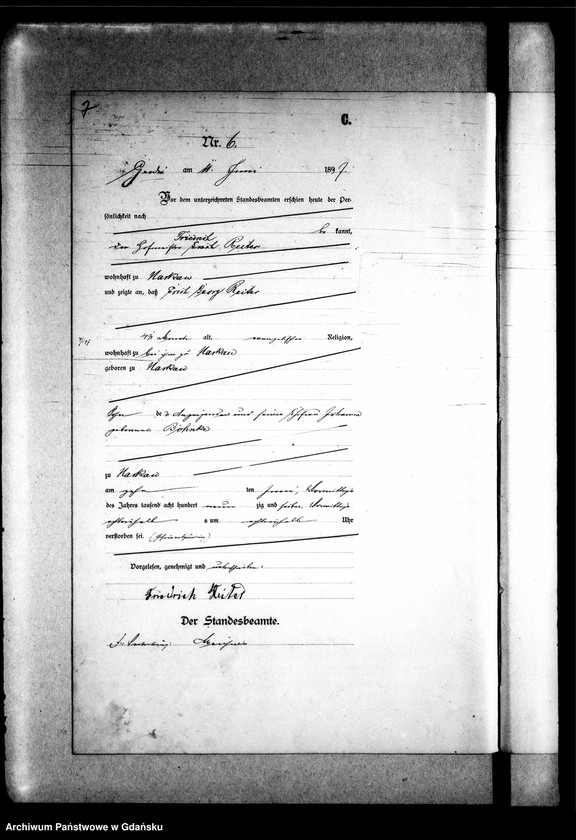 7
C.
Nr. 6.
am 11. Juni 1897.
Vor dem unterzeichneten Standesbeamten erschien heute der Per-
sönlichkeit nach
Friedrich
be kannt,
der Hofmeister Reiter
wohnhaft zu Narkau
und zeigte an, daß Fritz Georg Reiter
4½ Monate alt, evangelischer Religion,
wohnhaft zu bei ihm zu Narkau
geboren zu Narkau
Sohn des Anzeigenden und seiner Ehefrau Johanna
geborenen
zu Narkau
am zehn ten Juni,
des Jahres tausend acht hundert neun zig und sieben, Vormittags
um Uhr
verstorben sei.
Vorgelesen, genehmigt und unterschrieben.
Friedrich Reiter
Der Standesbeamte.
Archiwum Państwowe w Gdańsku